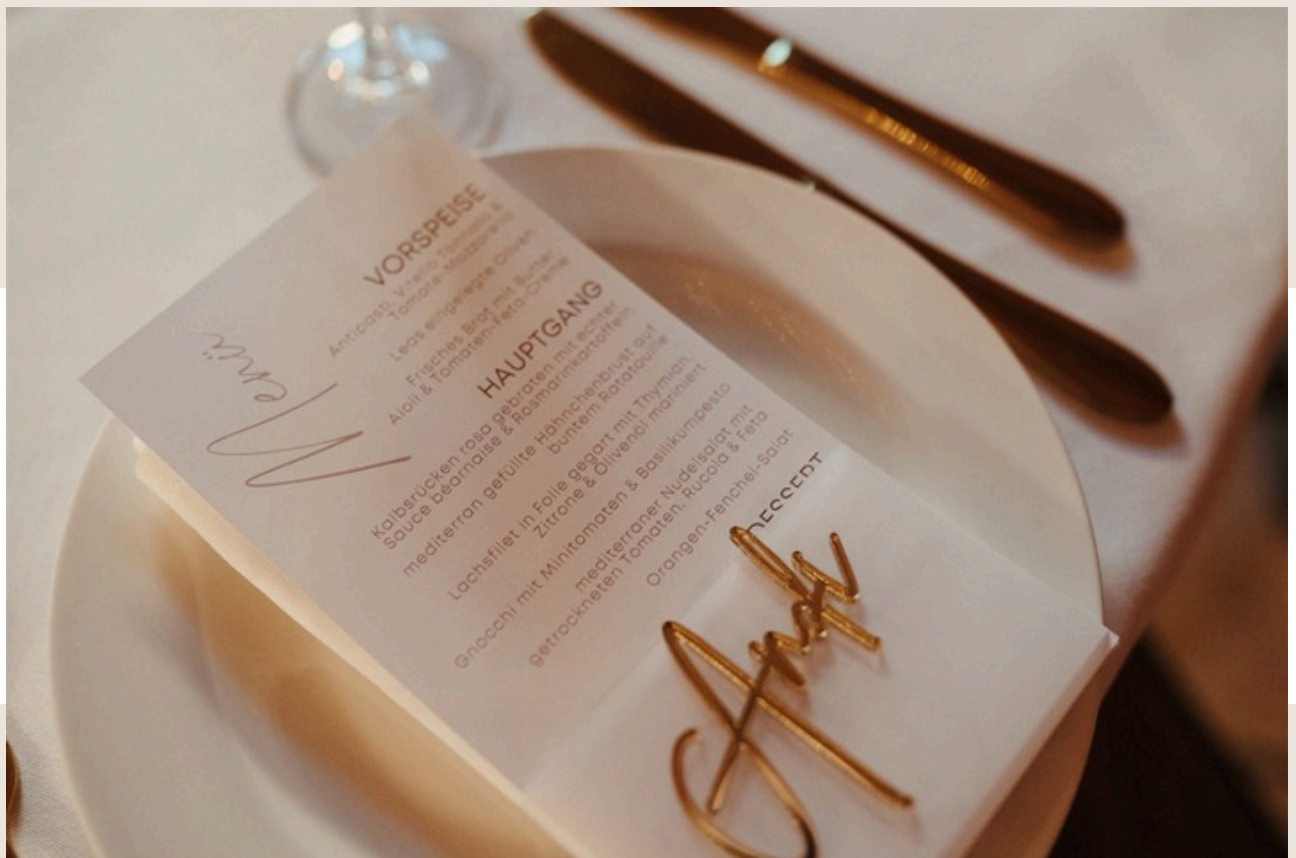 Menü
VORSPEISE
Antipasti, Vitello Tonnato &
Tomate-Mozzarella
Leas eingelegte Oliven
Frisches Brot mit Butter,
Aioli & Tomaten-Feta-Creme
HAUPTGANG
Kalbsrücken rosa gebraten mit echter
Sauce béarnaise & Rosmarinkartoffeln
mediterran gefüllte Hähnchenbrust auf
buntem Ratatouille
Lachsfilet in Folie gegart mit Thymian,
Zitrone & Olivenöl mariniert
Gnocchi mit Minitomaten & Basilikumpesto
mediterraner Nudelsalat mit
getrockneten Tomaten, Rucola & Feta
Orangen-Fenchel-Salat
DESSERT